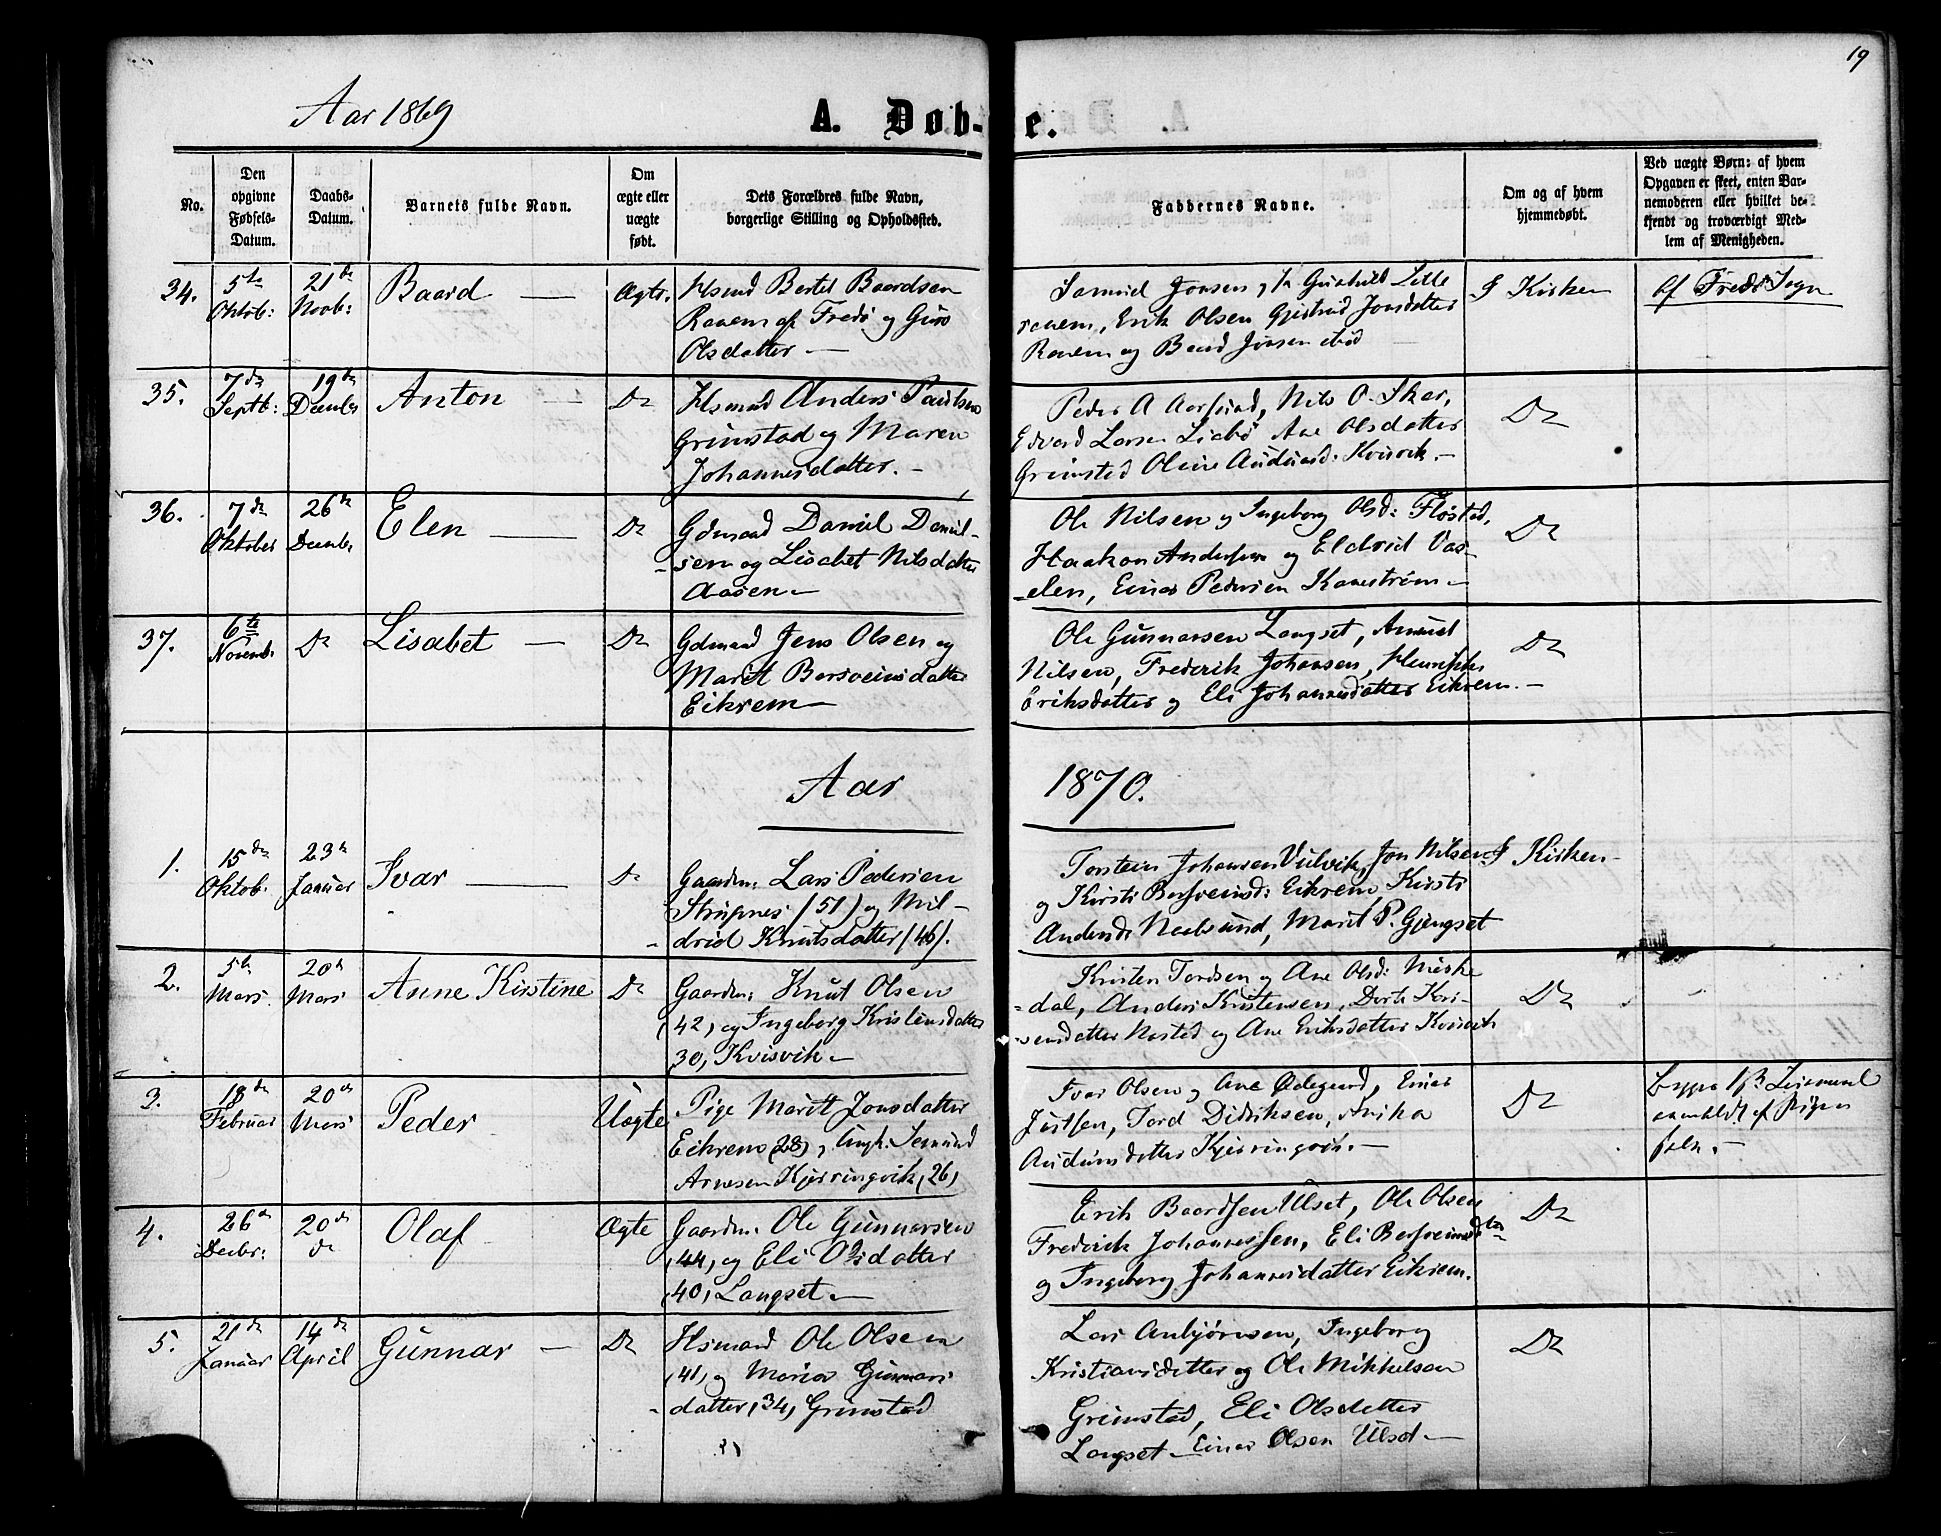 19
Aar 1869
A. Døb-e.
No.
Den opgivne Fødsels-Datum.
Daabs-Datum.
Barnets fulde Navn.
Om ægte eller uægte født.
Dets Forældres fulde Navn, borgerlige Stilling og Opholdssted.
Faddernes Navne.
Om og af hvem hjemmedøbt.
Ved uægte Børn: af hvem Opgaven er skeet, enten Barnemoderen eller hvilket bekjendt og troværdigt Medlem af Menigheden.
34. 5te Oktob: 21de Novb: Baard — Ægte.
Hsmd Bertel Baardsen
Ranem af Fredø og Guro
Olsdatter —
Samuel Jonsen, Gunhild Lille
ranem, Erik Olsen Gjertrud Jonsdatter
Ranem og Baard Jonsen ibid
I Kirken
af Fredø Sogn
35. 7de Septb: 19de Decembr Anton — Do
Hsmand Anders Paulsen
Grimstad og Maren
Johannesdatter. —
Peder A Aarsund, Nils O. Skar,
Edvard Larsen Liabø Ane Olsdatter
Grimstad Oline Audunsd: Kvisvik. —
Do
36. 7de Oktober 26de Decembr Elen — Do
Gdmand Daniel Daniel-
sen og Lisabet Nilsdatter
Aasen —
Ole Nilsen og Ingeborg Olsd: Fløstad,
Haakon Andersen og Eldrid Vaa-
len, Einar Pedersen Kanestrøm —
Do
37. 6te Novemb. Do Lisabet — Do
Gdmand Jens Olsen og
Marit Bersveinsdatter
Eikrem —
Ole Gunnarsen Langset, Amund
Nilsen, Frederik Johansen, Henrikke
Eriksdatter og Eli Johannesdatter Eikrem. —
Do
Aar 1870.
1. 15de Oktob. 23de Januar Ivar — Do
Gaardm: Lars Pedersen
Strupnes (51) og Mil-
drid Knutsdatter (46).
Torstein Johansen Vulvik, Jon Nilsen
og Kirsti Bersveinsd: Eikrem, Kirsti
Andersd: Marit P. Gjengset
I Kirken —
2. 5te Mars. 20de Mars Anne Kirstine Do
Gaardm: Knut Olsen
(42) og Ingeborg Kristensdatter
30, Kvisvik —
Kristen Tordsen og Ane Olsd: Meske
dal, Anders Kristensen, Dorte Kri-
sensdatter og Ane Eriksdatter Kvisvik
Do
3. 18de Februar 20de Mars Peder Uægte
Pige Marit Jonsdatter
Eikrem (28), Ungk. Semund
Arnesen Kjerringvik (26)
Ivar Olsen og Ane Ødegaard, Einar
Justsen, Tord Didriksen, Anika
Audunsdatter Kjerringvik. —
Do
anmeldt af Pigen
selv. —
4. 26de Decbr: 20de do Olaf Ægte
Gaardm: Ole Gunnarsen
(44) og Eli Olsdatter
(40) Langset —
Erik Baardsen Ulset, Ole Olsen
Frederik Johannessen, Eli Bersveinsdtr
og Ingeborg Johannesdatter Eikrem.
Do
5. 21de Januar 14de April Gunnar — Do
Hsmand Ole Olsen
(41) og Maria Gunnars
datter (34) Grimstad
Lars Anbjørnsen, Ingeborg
Kristiansdatter og Ole Mikkelsen
Grimstad, Eli Olsdatter
Langset — Einar Olsen Ulsd —
Do